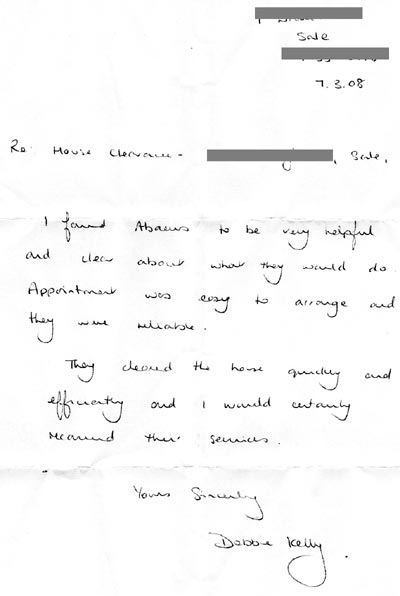 Sale
7.3.08
Re: House Clearance - , Sale,
I found Abacus to be very helpful
and clear about what they would do.
Appointment was easy to arrange and
they were reliable.
They cleared the house quickly and
efficiently and I would certainly
recommend their services.
Yours Sincerely
Debbie Kelly.